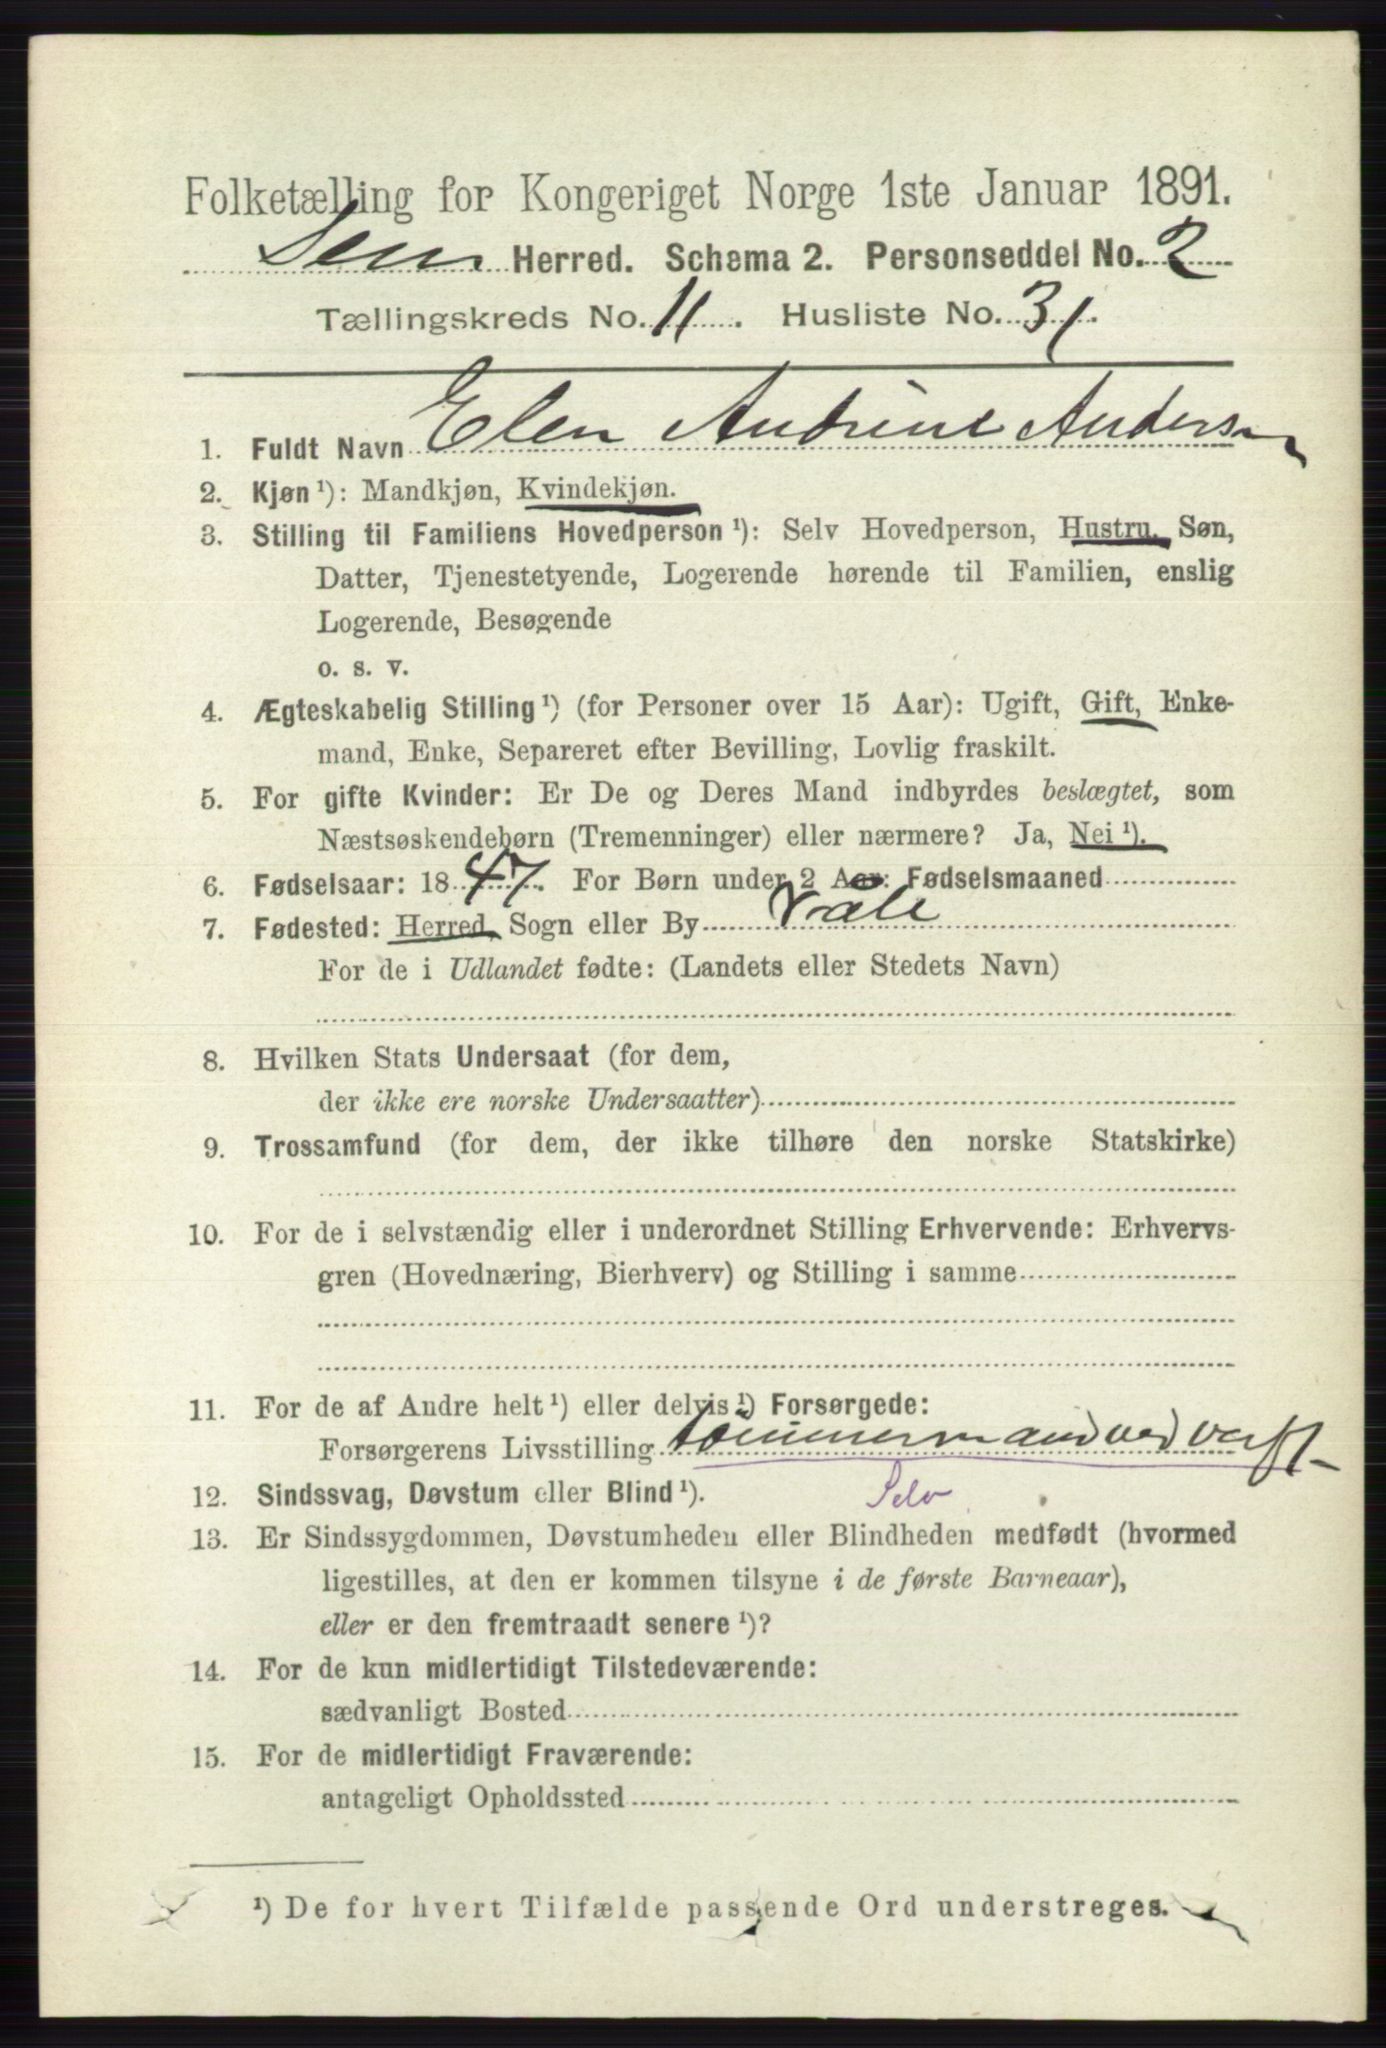 Folketælling for Kongeriget Norge 1ste Januar 1891.
Sem Herred. Schema 2. Personseddel No. 2
Tællingskreds No. 11. Husliste No. 31.
1. Fuldt Navn Elen Andrine Andersen
2. Kjøn ¹): Mandkjøn, Kvindekjøn.
3. Stilling til Familiens Hovedperson ¹): Selv Hovedperson, Hustru, Søn,
Datter, Tjenestetyende, Logerende hørende til Familien, enslig
Logerende, Besøgende
o. s. v.
4. Ægteskabelig Stilling ¹) (for Personer over 15 Aar): Ugift, Gift, Enke-
mand, Enke, Separeret efter Bevilling, Lovlig fraskilt.
5. For gifte Kvinder: Er De og Deres Mand indbyrdes beslægtet, som
Næstsøskendebørn (Tremenninger) eller nærmere? Ja, Nei ¹).
6. Fødselsaar: 1847. For Børn under 2 Aar: Fødselsmaaned
7. Fødested: Herred, Sogn eller By Våle
For de i Udlandet fødte: (Landets eller Stedets Navn)
8. Hvilken Stats Undersaat (for dem,
der ikke ere norske Undersaatter)
9. Trossamfund (for dem, der ikke tilhøre den norske Statskirke)
10. For de i selvstændig eller i underordnet Stilling Erhvervende: Erhvervs-
gren (Hovednæring, Bierhverv) og Stilling i samme
11. For de af Andre helt ¹) eller delvis ¹) Forsørgede:
Forsørgerens Livsstilling tömmermand ved verft
12. Sindssvag, Døvstum eller Blind ¹). Selv
13. Er Sindssygdommen, Døvstumheden eller Blindheden medfødt (hvormed
ligestilles, at den er kommen tilsyne i de første Barneaar),
eller er den fremtraadt senere ¹)?
14. For de kun midlertidigt Tilstedeværende:
sædvanligt Bosted
15. For de midlertidigt Fraværende:
antageligt Opholdssted
¹) De for hvert Tilfælde passende Ord understreges.